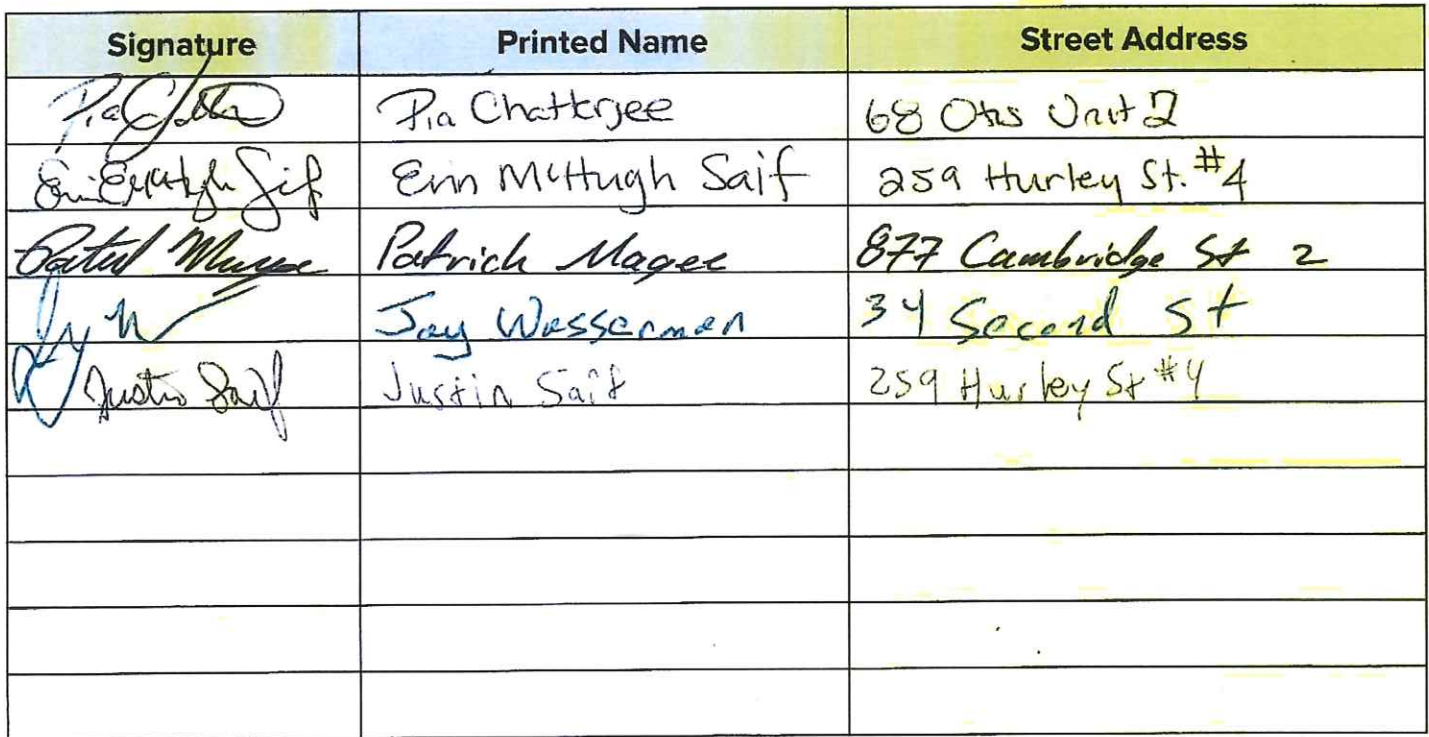 Signature Printed Name Street Address
Pia Chatterjee 68 Otis Unit 2
Erin McHugh Saif Erin McHugh Saif 259 Hurley St. #4
Patrick Magee 877 Cambridge St 2
Jay Wasserman 34 Second St
Justin Saif Justin Saif 259 Hurley St #4